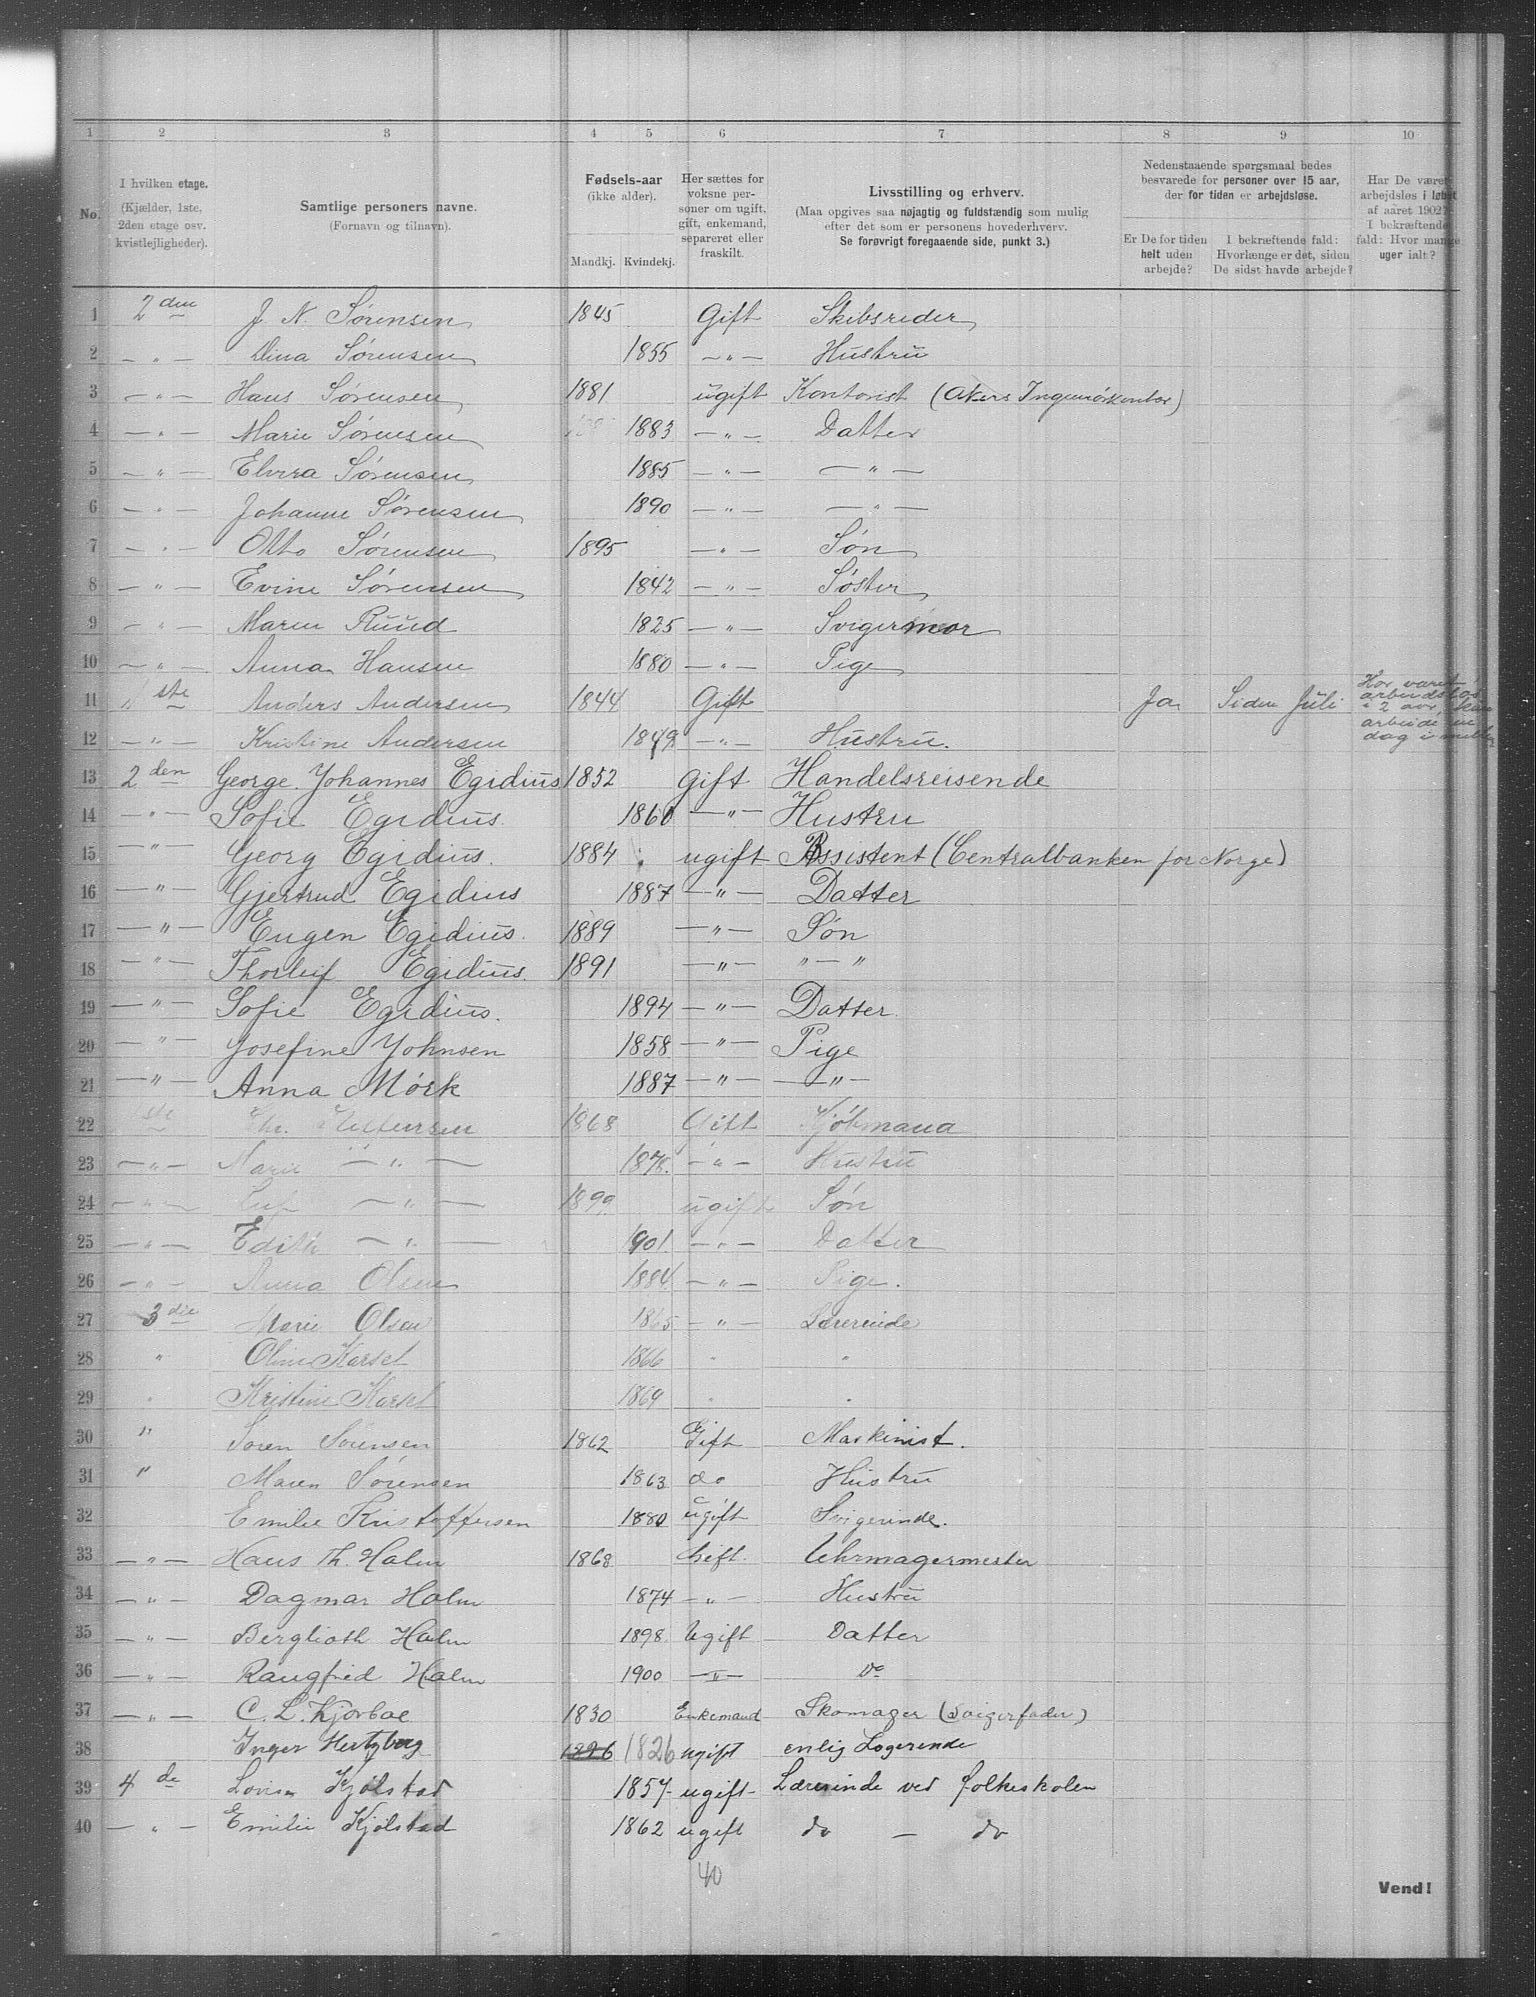 1 2 3 4 5 6 7 8 9 10
No.
I hvilken etage.
(Kjælder, 1ste,
2den etage osv.
kvistlejligheder).
Samtlige personers navne.
(Fornavn og tilnavn).
Fødsels-aar
(ikke alder).
Mandkj. Kvindekj.
Her sættes for
voksne per-
soner om ugift,
gift, enkemand,
separeret eller
fraskilt.
Livsstilling og erhverv.
(Maa opgives saa nøjagtig og fuldstændig som mulig
efter det som er personens hovederhverv.
Se forøvrigt foregaaende side, punkt 3.)
Nedenstaaende spørgsmaal bedes
besvarede for personer over 15 aar,
der for tiden er arbejdsløse.
Er De for tiden
helt uden
arbejde?
I bekræftende fald:
Hvorlænge er det, siden
De sidst havde arbejde?
Har De været
arbejdsløs i løbet
af aaret 1902?
I bekræftende
fald: Hvor mange
uger ialt?
1 2den J. N. Sørensen 1845 Gift Skibsreder
2 — " — Dina Sørensen 1855 — " — Hustru
3 — " — Hans Sørensen 1881 ugift Kontorist (Akers Ingeniørkontor)
4 — " — Marie Sørensen 1883 — " — Datter
5 — " — Elvira Sørensen 1885 — " — — " —
6 — " — Johanne Sørensen 1890 — " — — " —
7 — " — Otto Sørensen 1895 — " — Søn
8 — " — Evine Sørensen 1842 — " — Søster
9 — " — Maren Ruud 1825 — " — Svigermor
10 — " — Anna Hansen 1880 — " — Pige
11 1ste Anders Andersen 1844 Gift Ja Siden Juli Har været arbeidsløs i 2 aar, kun arbeide en dag i
12 — " — Kristine Andersen 1849 — " — Hustru.
13 2den George Johannes Egidius 1852 Gift Handelsreisende
14 — " — Sofie Egidius 1860 — " — Hustru
15 — " — Georg Egidius. 1884 ugift Assistent (Centralbanken for Norge)
16 — " — Gjertrud Egidius 1887 — " — Datter
17 — " — Eugen Egidius. 1889 — " — Søn
18 — " — Thorleif Egidius. 1891 — " — " — "
19 — " — Sofie Egidius. 1894 — " — Datter
20 — " — Josefine Johnsen 1858 — " — Pige
21 — " — Anna Mörk 1887 — " — — " —
22 1ste Chr. 1868 Gift Kjøbmand
23 — " — Marie — " — 187 — " — Hustru
24 — " — — " — 1899 ugift Søn
25 — " — Edith — " — 1901 — " — Datter
26 — " — Anna Olsen 1884 — " — Pige.
27 3die Marie Olsen 1865 — " — Lærerinde
28 " Oline Karset 1866 " "
29 " Kristine Karset 1869 " "
30 " Soren Sørensen 1862 Gift Maskinist.
31 " Maren Sørensen 1863 do Hustru
32 Emilie Kristoffersen 1880 ugift Svigerinde.
33 — " — Hans Th. Holm 1868 Gift. Uhrmagermester
34 — " — Dagmar Holm 1874 — " — Hustru
35 — " — Berglioth Holm 1898 Ugift Datter
36 — " — Rangfred Holm 1900 — " — Do
37 — " — C. L. Kjørboe 1830 Enkemand Skomager (Svigerfader)
38 Inger Hertzberg 1826 1826 ugift enlig Logerende
39 4de Lovisa Kjölstad 1857 ugift Lærerinde ved folkeskolen
40 — " — Emilie Kjölstad 1862 ugift do — do
40
Vend!